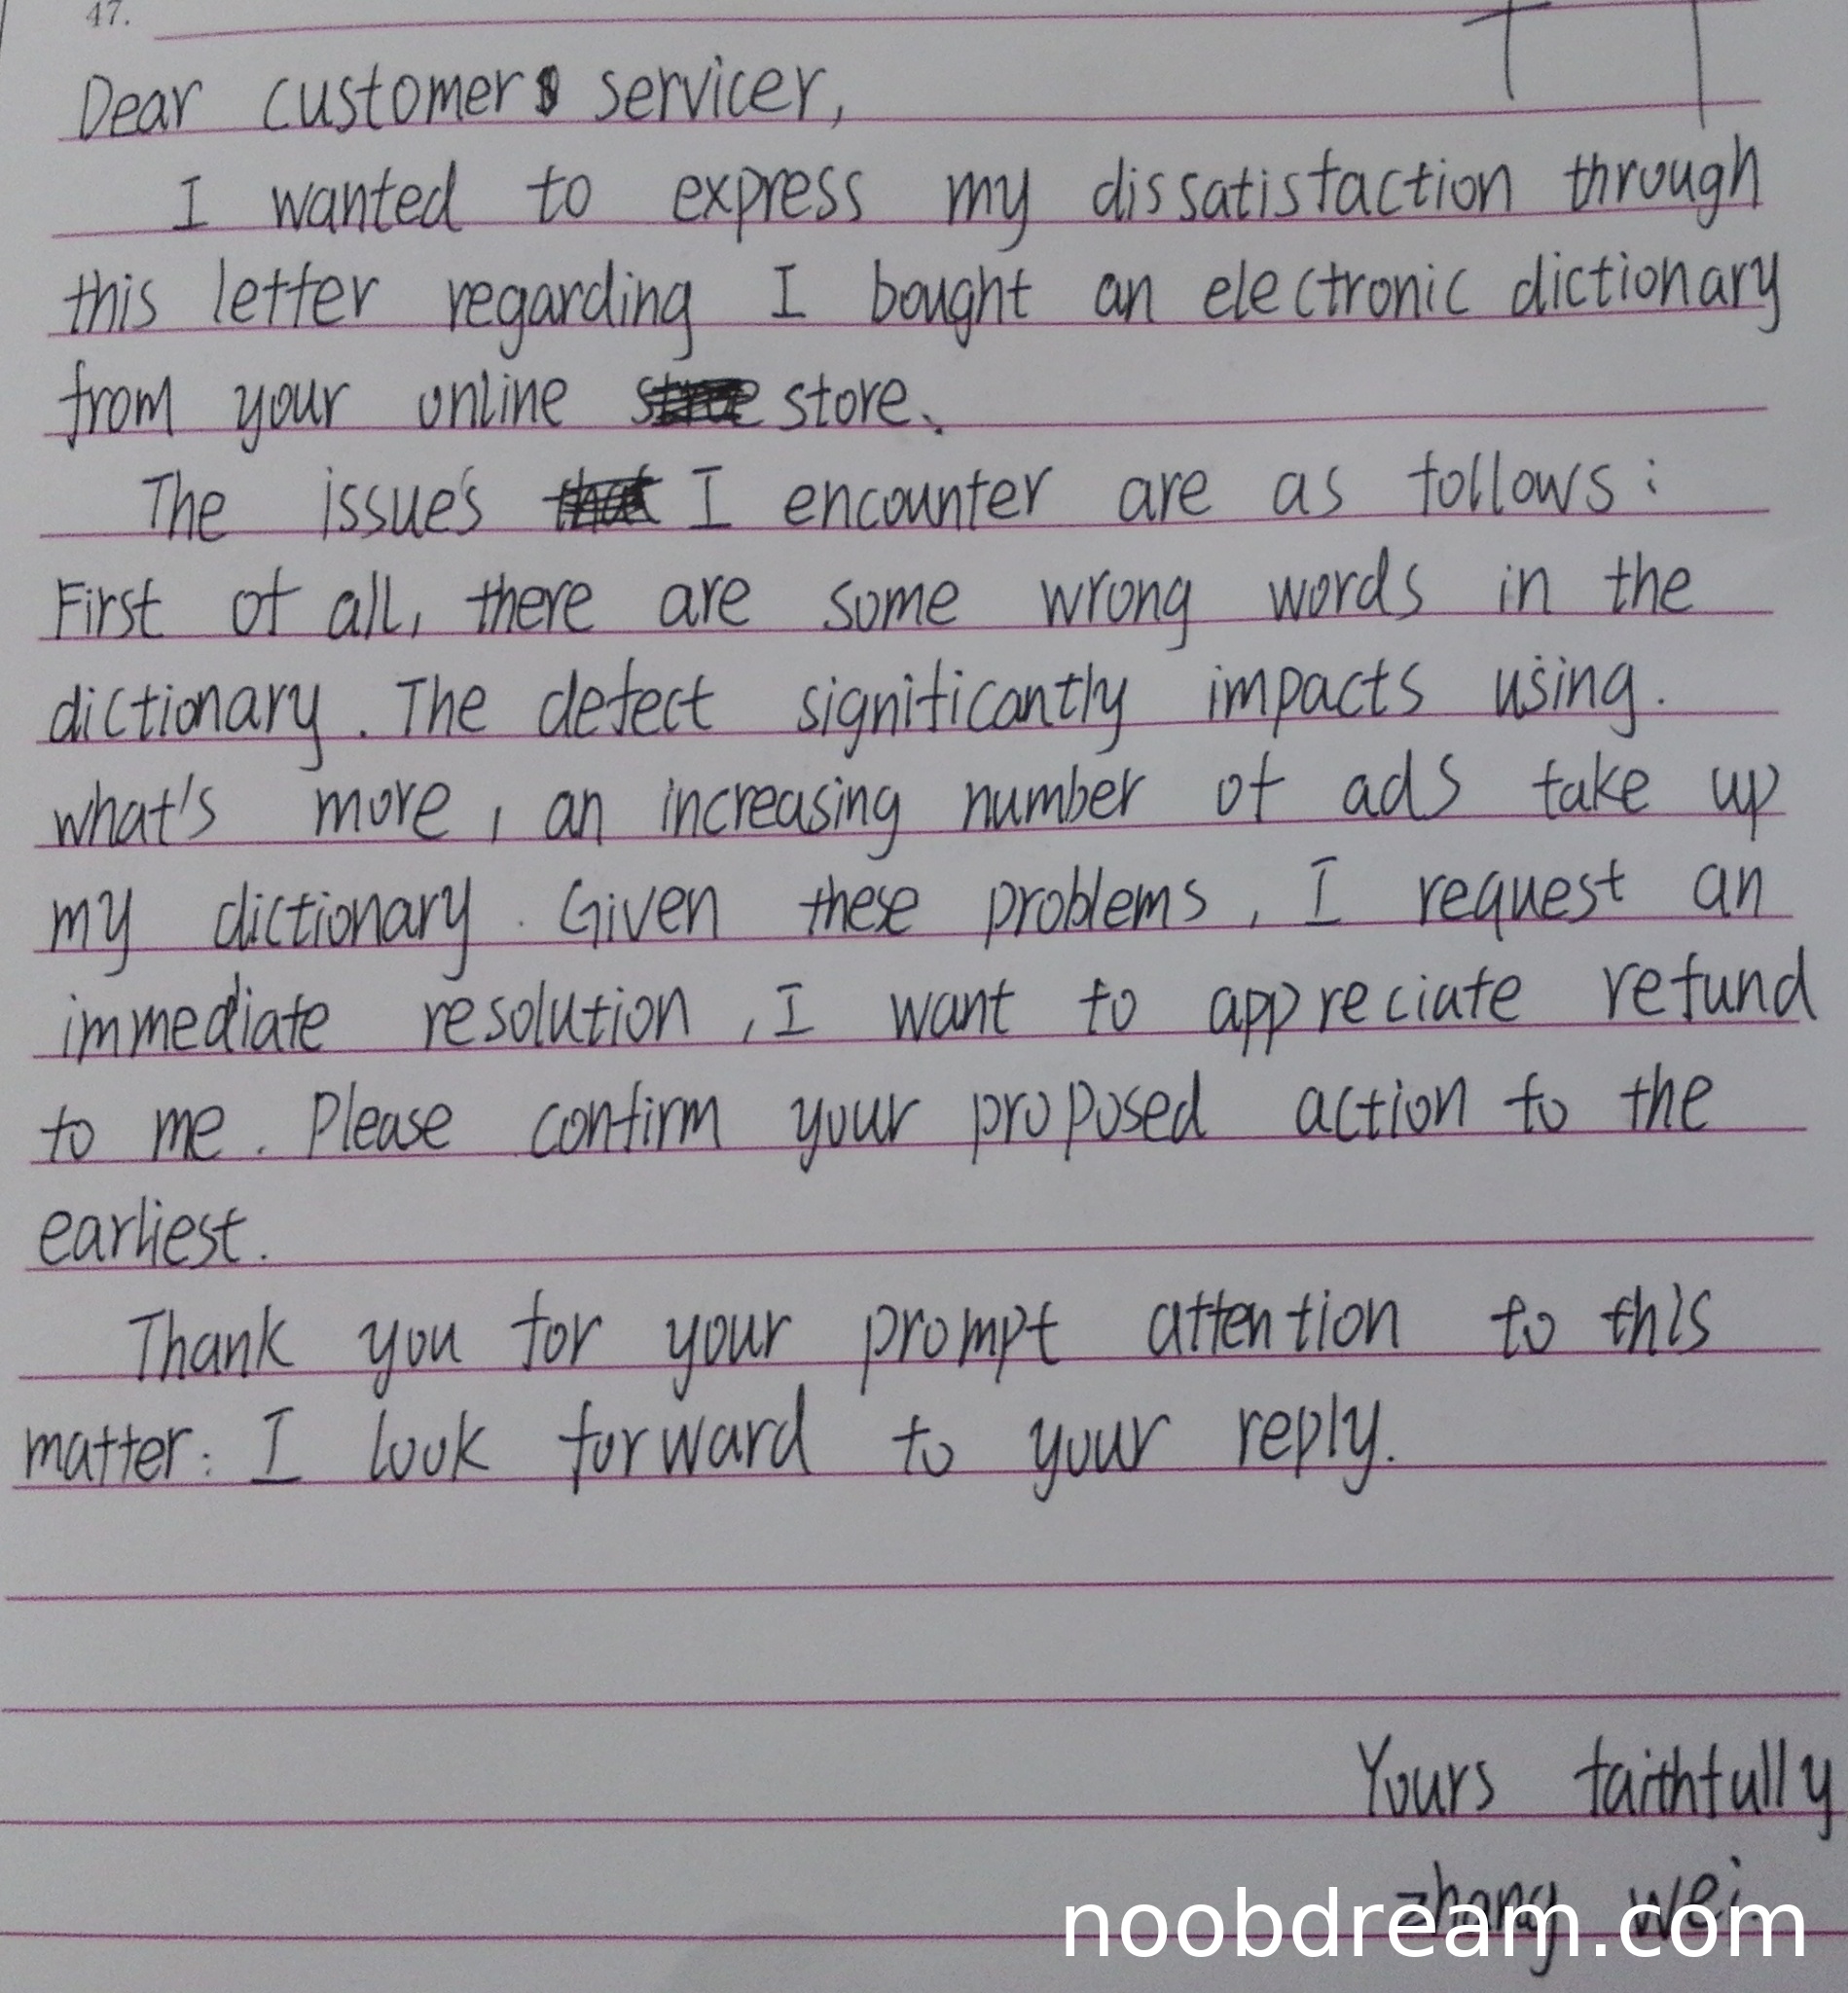 47.
Dear customers servicer,
I wanted to express my dissatisfaction through
this letter regarding I bought an electronic dictionary
from your online store.
The issues I encounter are as follows:
First of all, there are some wrong words in the
dictionary. The defect significantly impacts using.
what's more, an increasing number of ads take up
my dictionary. Given these problems, I request an
immediate resolution, I want to appreciate refund
to me. Please confirm your proposed action to the
earliest.
Thank you for your prompt attention to this
matter. I look forward to your reply.
Yours faithfully
zhang wei.
noobdream.com